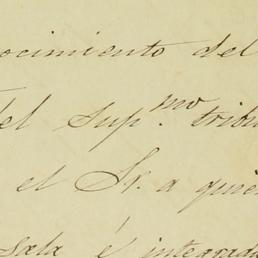 nocimiento del
del Sup.mo tribu
el Sr. a quien
Sala é integrada